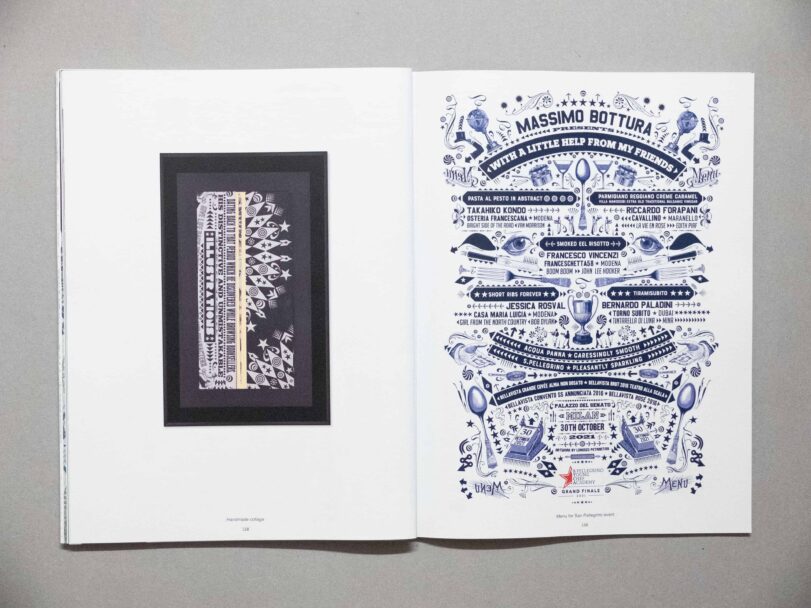 DATING BACK TO THAT PERIOD WHEN HE DISCOVERED WHILE
HIS DISTINCTIVE AND INIMITABLE
ILLUSTRATIONS:
Handmade collage
138
MASSIMO BOTTURA
PRESENTS
WITH A LITTLE HELP FROM MY FRIENDS
MENU
MENU
PASTA AL PESTO IN ABSTRACT
TAKAHIKO KONDO
OSTERIA FRANCESCANA MODENA
BRIGHT SIDE OF THE ROAD VAN MORRISON
PARMIGIANO REGGIANO CREME CARAMEL
VILLA MANODORI EXTRA OLD TRADITIONAL BALSAMIC VINEGAR
RICCARDO FORAPANI
CAVALLINO MARANELLO
LA VIE EN ROSE EDITH PIAF
SMOKED EEL RISOTTO
FRANCESCO VINCENZI
FRANCESCHETTA58 MODENA
BOOM BOOM JOHN LEE HOOKER
SHORT RIBS FOREVER
JESSICA ROSVAL
CASA MARIA LUIGIA MODENA
GIRL FROM THE NORTH COUNTRY BOB DYLAN
TIRAMISUBITO
BERNARDO PALADINI
TORNO SUBITO DUBAI
TINTARELLA DI LUNA MINA
ACQUA PANNA CARESSINGLY SMOOTH
S.PELLEGRINO PLEASANTLY SPARKLING
BELLAVISTA GRANDE CUVÉE ALMA NON DOSATO BELLAVISTA BRUT 2016 TEATRO ALLA SCALA
BELLAVISTA CONVENTO SS ANNUNCIATA 2016 BELLAVISTA ROSÉ 2016
PALAZZO DEL SENATO
MILAN
30TH OCTOBER
2021
30
30
S.PELLEGRINO
YOUNG
CHEF
ACADEMY
GRAND FINALE
2021
MENU
MENU
Menu for San Pellegrino event